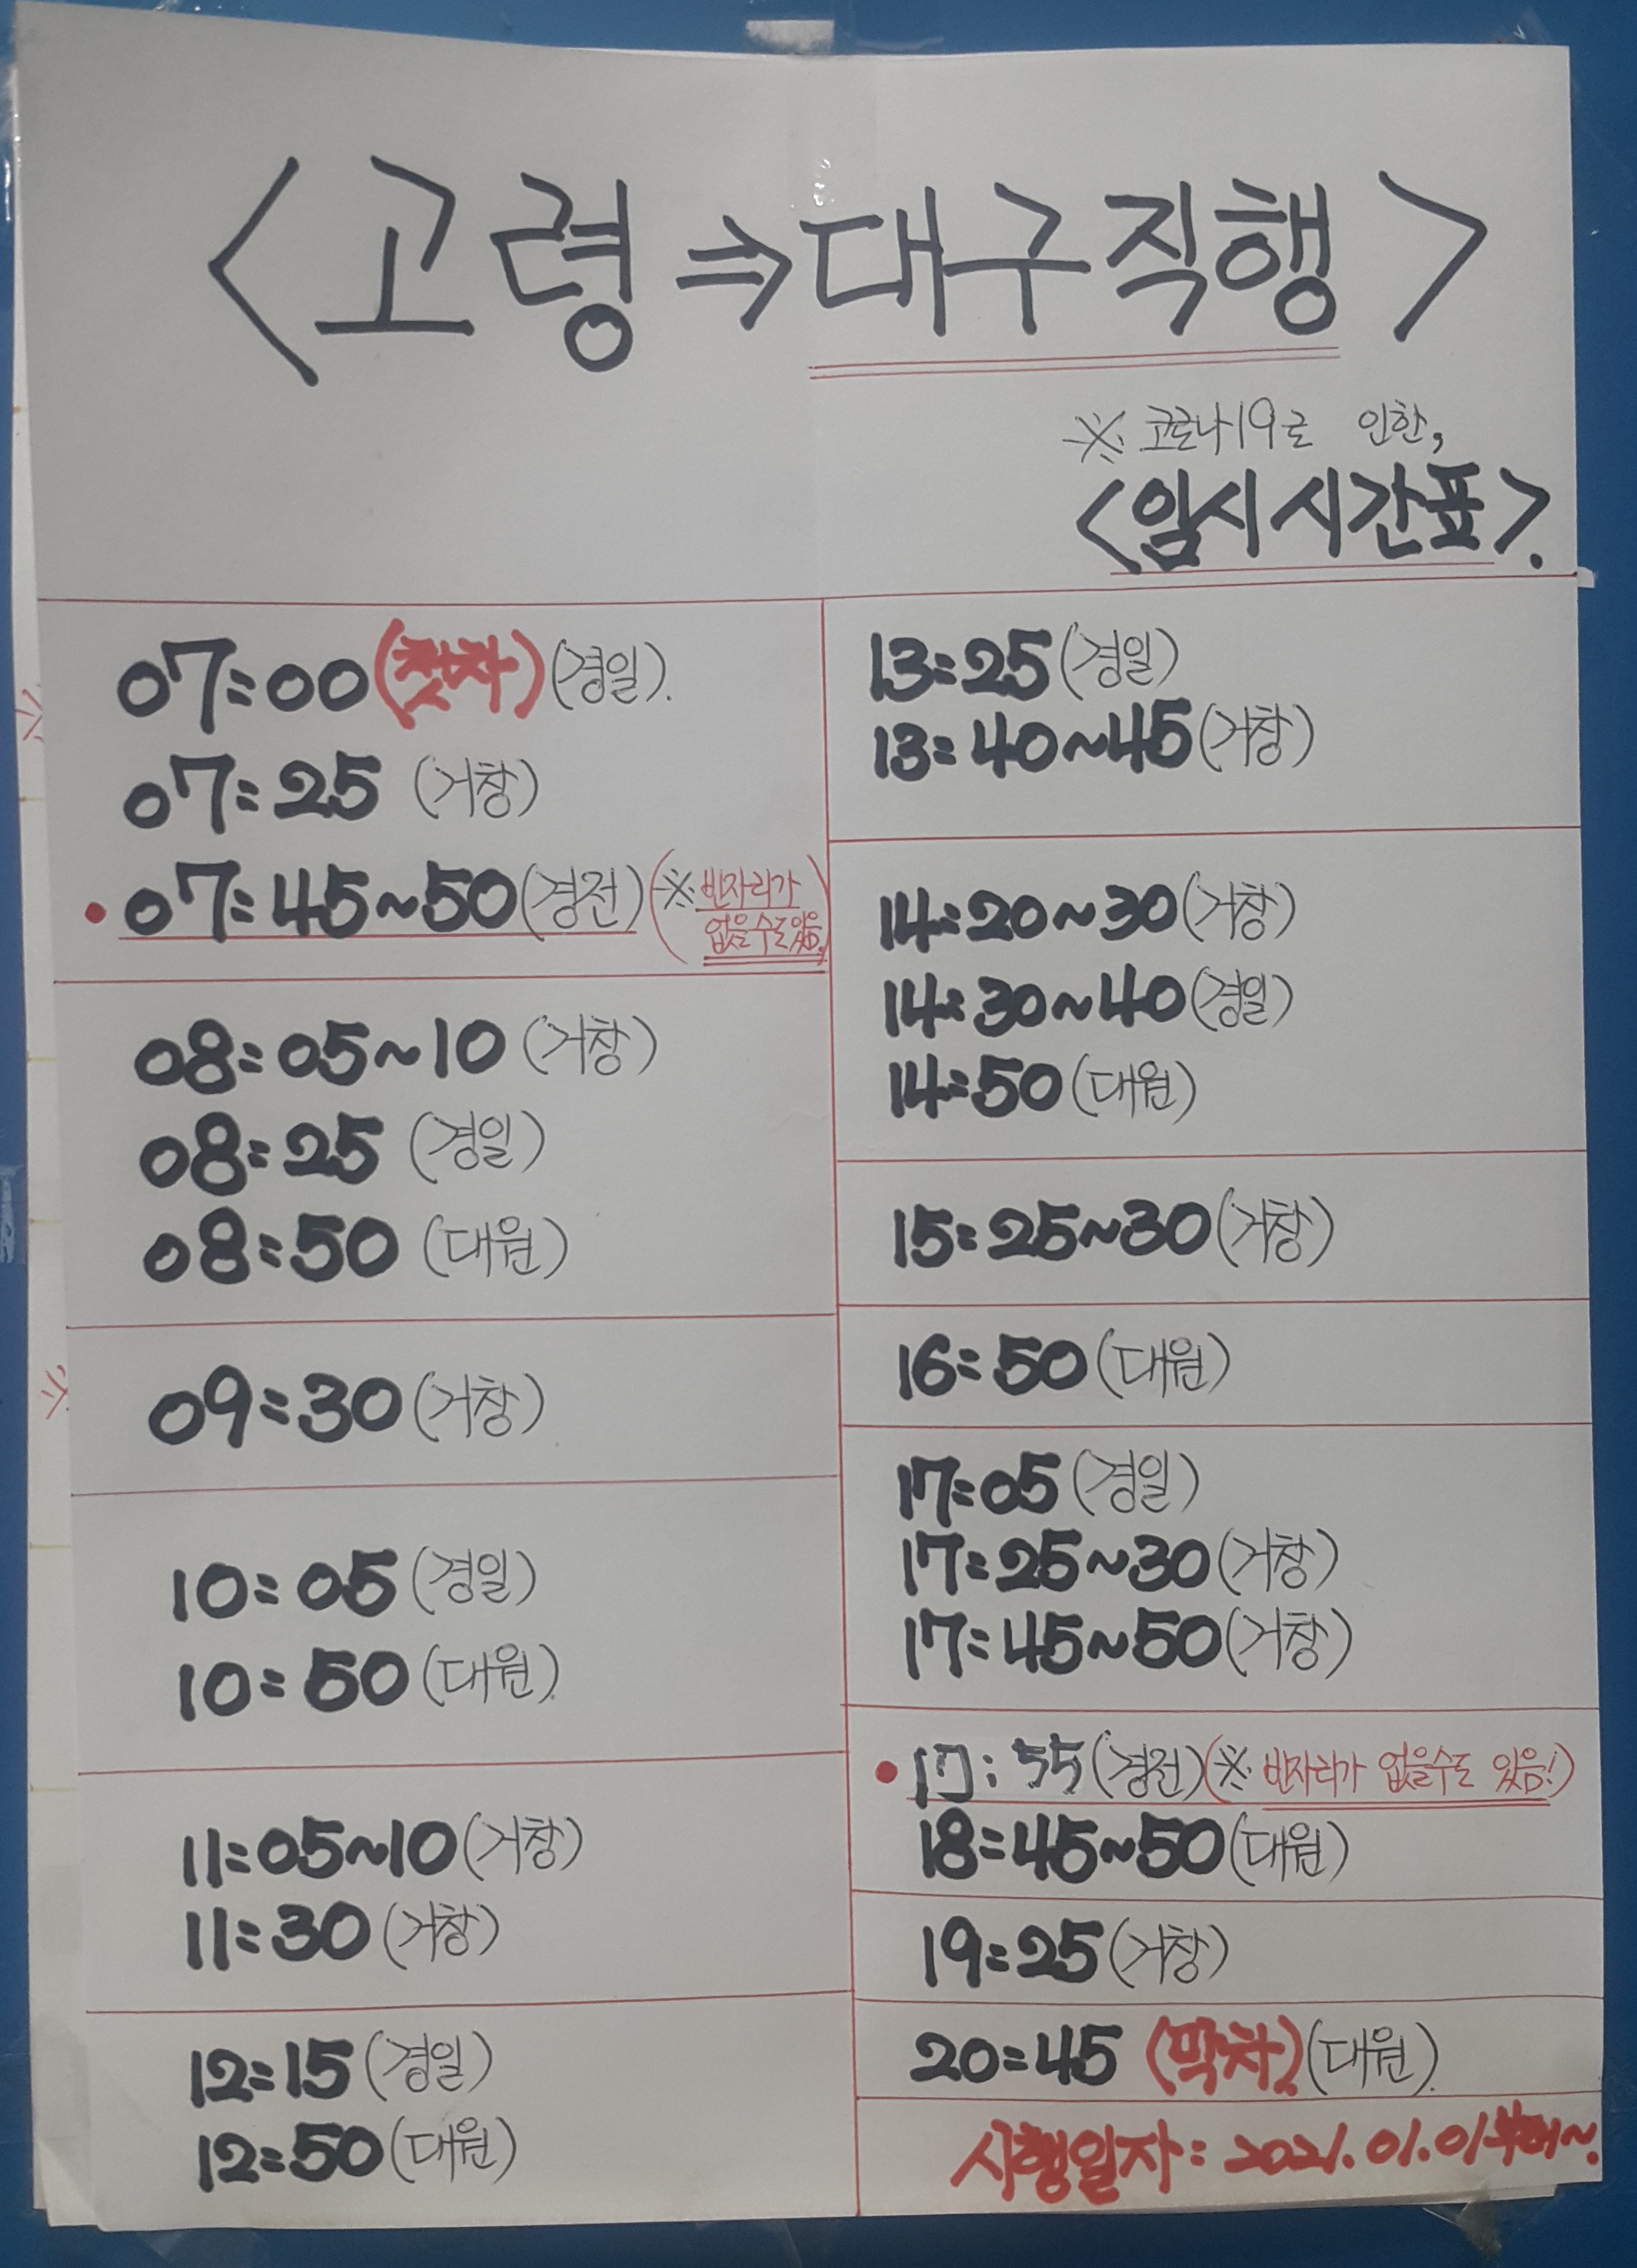 <고령⇒대구직행>
※ 코로나19로 인한,
<임시시간표>.
07:00(첫차)(경일).
07:25 (거창)
• 07:45~50(경전)(※ 빈자리가
없을수도있음.)
08:05~10 (거창)
08:25 (경일)
08:50 (대원)
09:30(거창)
10:05(경일)
10:50(대원).
11:05~10(거창)
11:30(거창)
12:15(경일)
12:50(대원)
13:25(경일)
13:40~45(거창)
14:20~30(거창)
14:30~40(경일)
14:50(대원)
15:25~30(거창)
16:50(대원)
17:05(경일)
17:25~30(거창)
17:45~50(거창)
• 17:55(경전)(※ 빈자리가 없을수도 있음!)
18:45~50(대원)
19:25(거창)
20:45 (막차)(대원).
시행일자: 2021.01.01부터~.